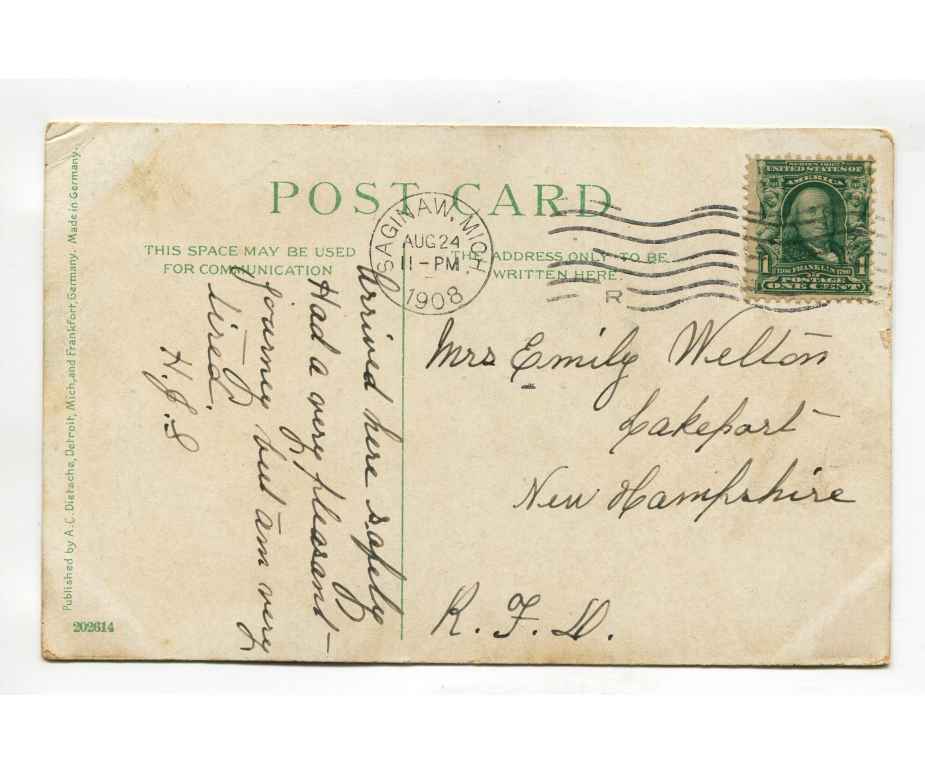 POST CARD
THIS SPACE MAY BE USED
FOR COMMUNICATION
THE ADDRESS ONLY TO BE
WRITTEN HERE.
SAGINAW, MICH.
AUG 24
11-PM
1908
R
SERIES 1902
UNITED STATES OF
AMERICA
1706 FRANKLIN 1790
1 1
POSTAGE
ONE CENT
Arrived here safely
Had a very pleasant-
journey but am very
tired.
H.J.S
Mrs Emily Welton
Lakeport
New Hampshire
R. F. D.
Published by A.C. Dietsche, Detroit, Mich, and Frankfort, Germany. Made in Germany.
202614